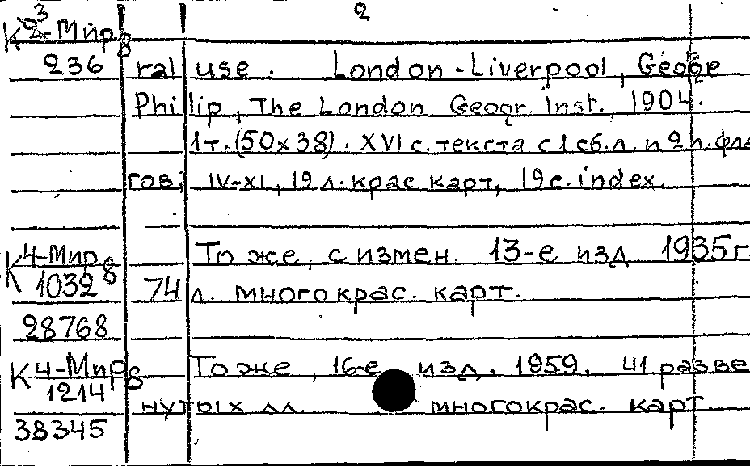 2
К 3/2-Мир 8
236 ral use. London-Liverpool, George
Philip, The London Geogr. Inst. 1904.
1т.(50x38). XVI с. текста с 1 сб.л. и 2 л. фла
гов; IV-XI, 19 л. крас карт, 19 с. index.
К 4-Мир 8 То же, с измен. 13-е изд 1935г
1032 74 л. многокрас. карт.
28768
К 4-Мир 8 То же, 16-е изд. 1959. 41 разве
1214 нутых лл. многокрас. карт
38345